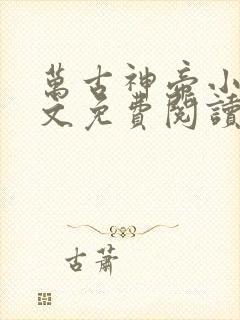 萬古神帝小
文免費閱讀
古蕭